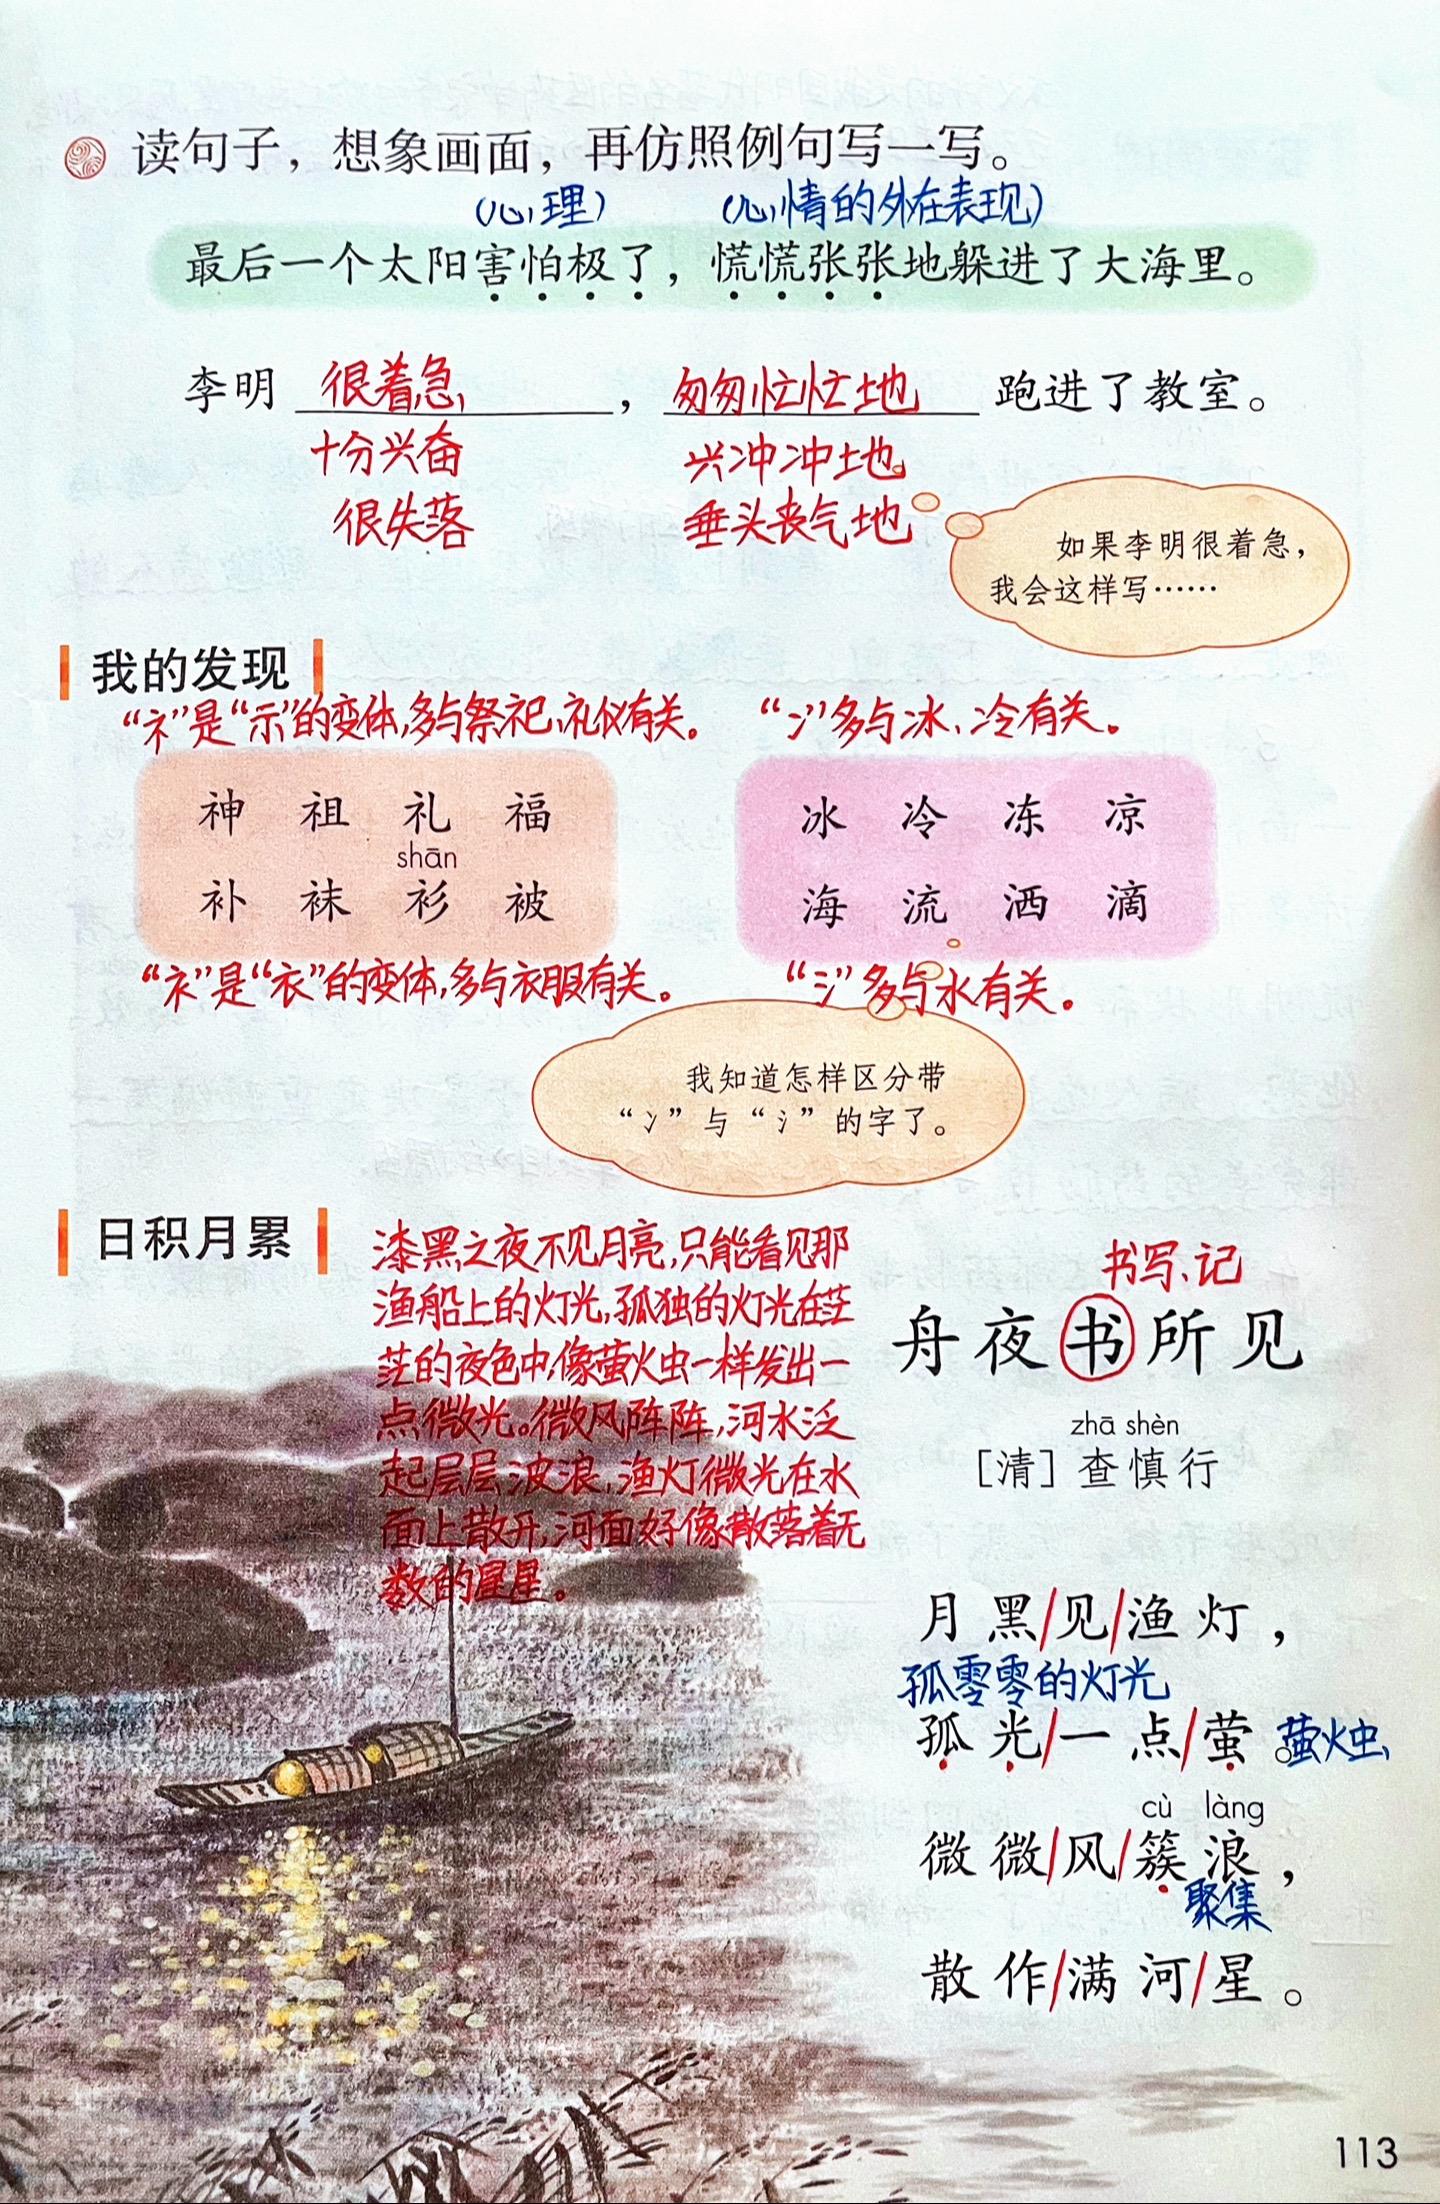 读句子，想象画面，再仿照例句写一写。
（心理）
（心情的外在表现）
最后一个太阳害怕极了，慌慌张张地躲进了大海里。
李明 很着急，匆匆忙忙地 跑进了教室。
十分兴奋 兴冲冲地
很失落 垂头丧气地
如果李明很着急，
我会这样写……
我的发现
“礻”是“示”的变体，多与祭祀、礼仪有关。
“冫”多与冰、冷有关。
神 祖 礼 福
shān
补 袜 衫 被
冰 冷 冻 凉
海 流 洒 滴
“衤”是“衣”的变体，多与衣服有关。
“氵”多与水有关。
我知道怎样区分带
“冫”与“氵”的字了。
日积月累
漆黑之夜不见月亮，只能看见那
渔船上的灯光，孤独的灯光在茫
茫的夜色中，像萤火虫一样发出一
点微光。微风阵阵，河水泛
起层层波浪，渔灯微光在水
面上散开，河面好像散落着无
数的星星。
书写、记
舟夜书所见
zhā shèn
［清］查慎行
月黑/见/渔灯，
孤零零的灯光
孤光/一点/萤。萤火虫
cù làng
微微/风/簇浪，
聚集
散作/满河/星。
113